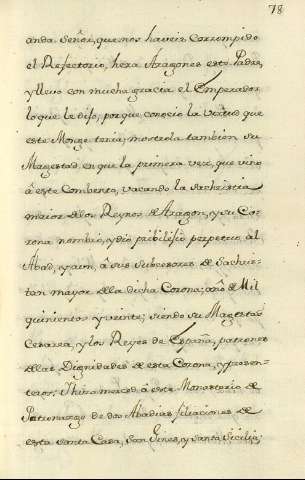 78
anda Señor, que nos haveis corrompido
el Refectorio, hera Aragones este Padre,
y llevo con mucha gracia el Emperador
lo que le dijo, porque conocio la virtud que
este Monge tenia; mostrola tambien su
Magestad en que la primera vez, que vino
â este Combento, vacando la Sachristia
maior de los Reynos de Aragon, y su Co=
rona nombrò, y diò pribilejio perpetuo al
Abad, y aun, â sus Subcesores de Sachris=
tan mayor de la dicha Corona; año de Mil
quinientos y veinte; siendo su Magestad
Cesarea, y los Reyes de España, patrones
de las Dignidades de esta Corona, y presen=
teros; Hizo merced â este Monasterio de
Patronazgo de dos Abadias filiaciones de
esta santa Casa, San Gines, y Santa Sicilia;